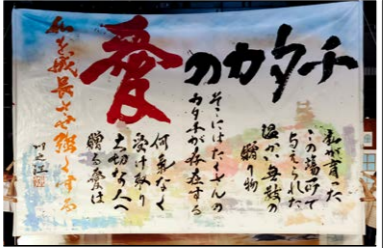 愛のカタチ
私が育った
この町で
与えられた
温かい無数の
贈り物
そこにはたくさんの
カタチが存在する
何気なく
受け取り
大切な人へ
贈る愛は
私を成長させ強くする
川之江